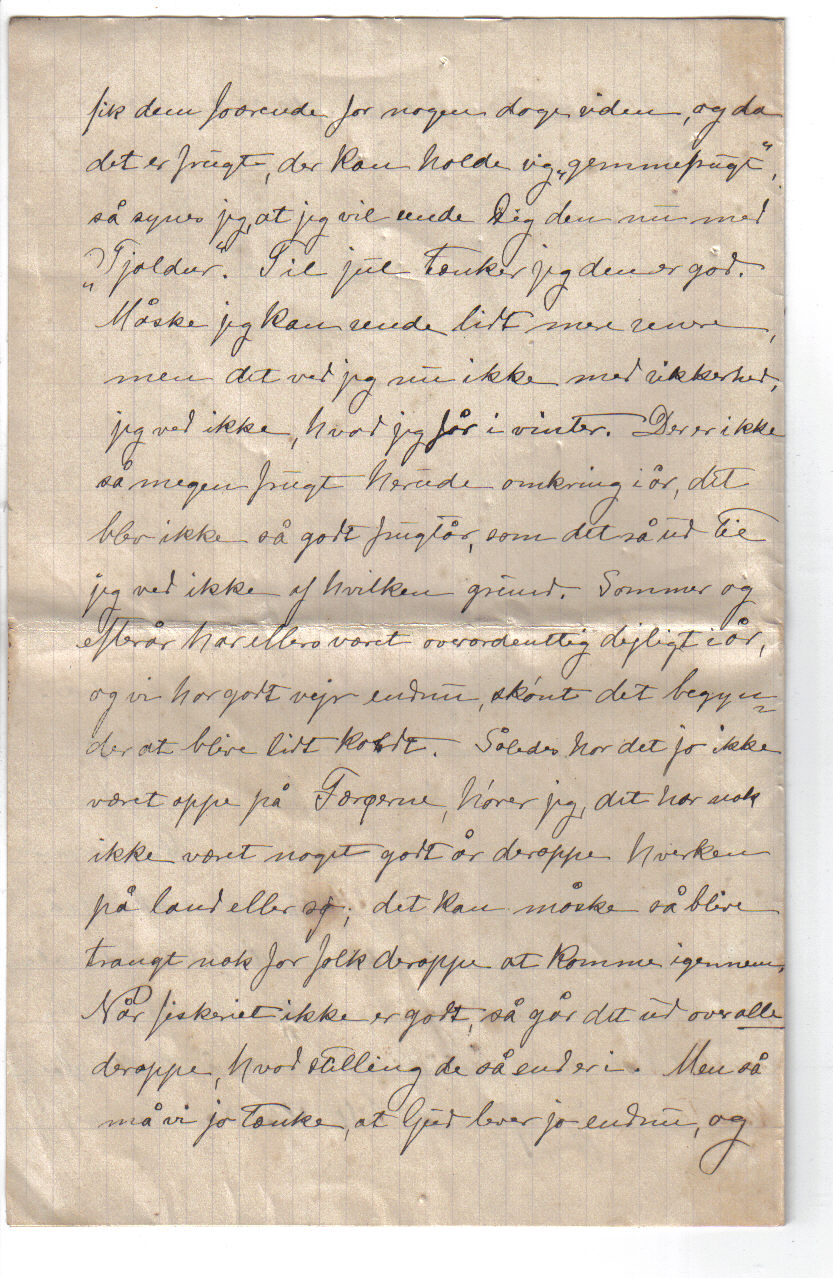 fik dem forærende for nogen dage siden, og da
det er frugt, der kan holde sig „gemmefrugt“,
så synes jeg, at jeg vil sende Dig den nu med
„Tjaldur“. Til jul tænker jeg den er god.
Måske jeg kan sende lidt mere senere,
men det ved jeg nu ikke med sikkerhed,
jeg ved ikke, hvad jeg får i vinter. Der er ikke
så megen frugt herude omkring i år, det
blev ikke så godt frugtår, som det så ud til
jeg ved ikke af hvilken grund. Sommer og
efterår har ellers været overordentlig dejligt i år,
og vi har godt vejr endnu, skönt det begyn-
der at blive lidt koldt. Således har det jo ikke
været oppe på Færøerne, hörer jeg, det har nok
ikke været noget godt år deroppe hverken
på land eller sø; det kan måske så blive
trangt nok for folk deroppe at komme igennem.
Når fiskeriet ikke er godt, så går det ud over alle
deroppe, hvad stilling de så end er i. Men så
må vi jo tænke, at Gud lever jo endnu, og